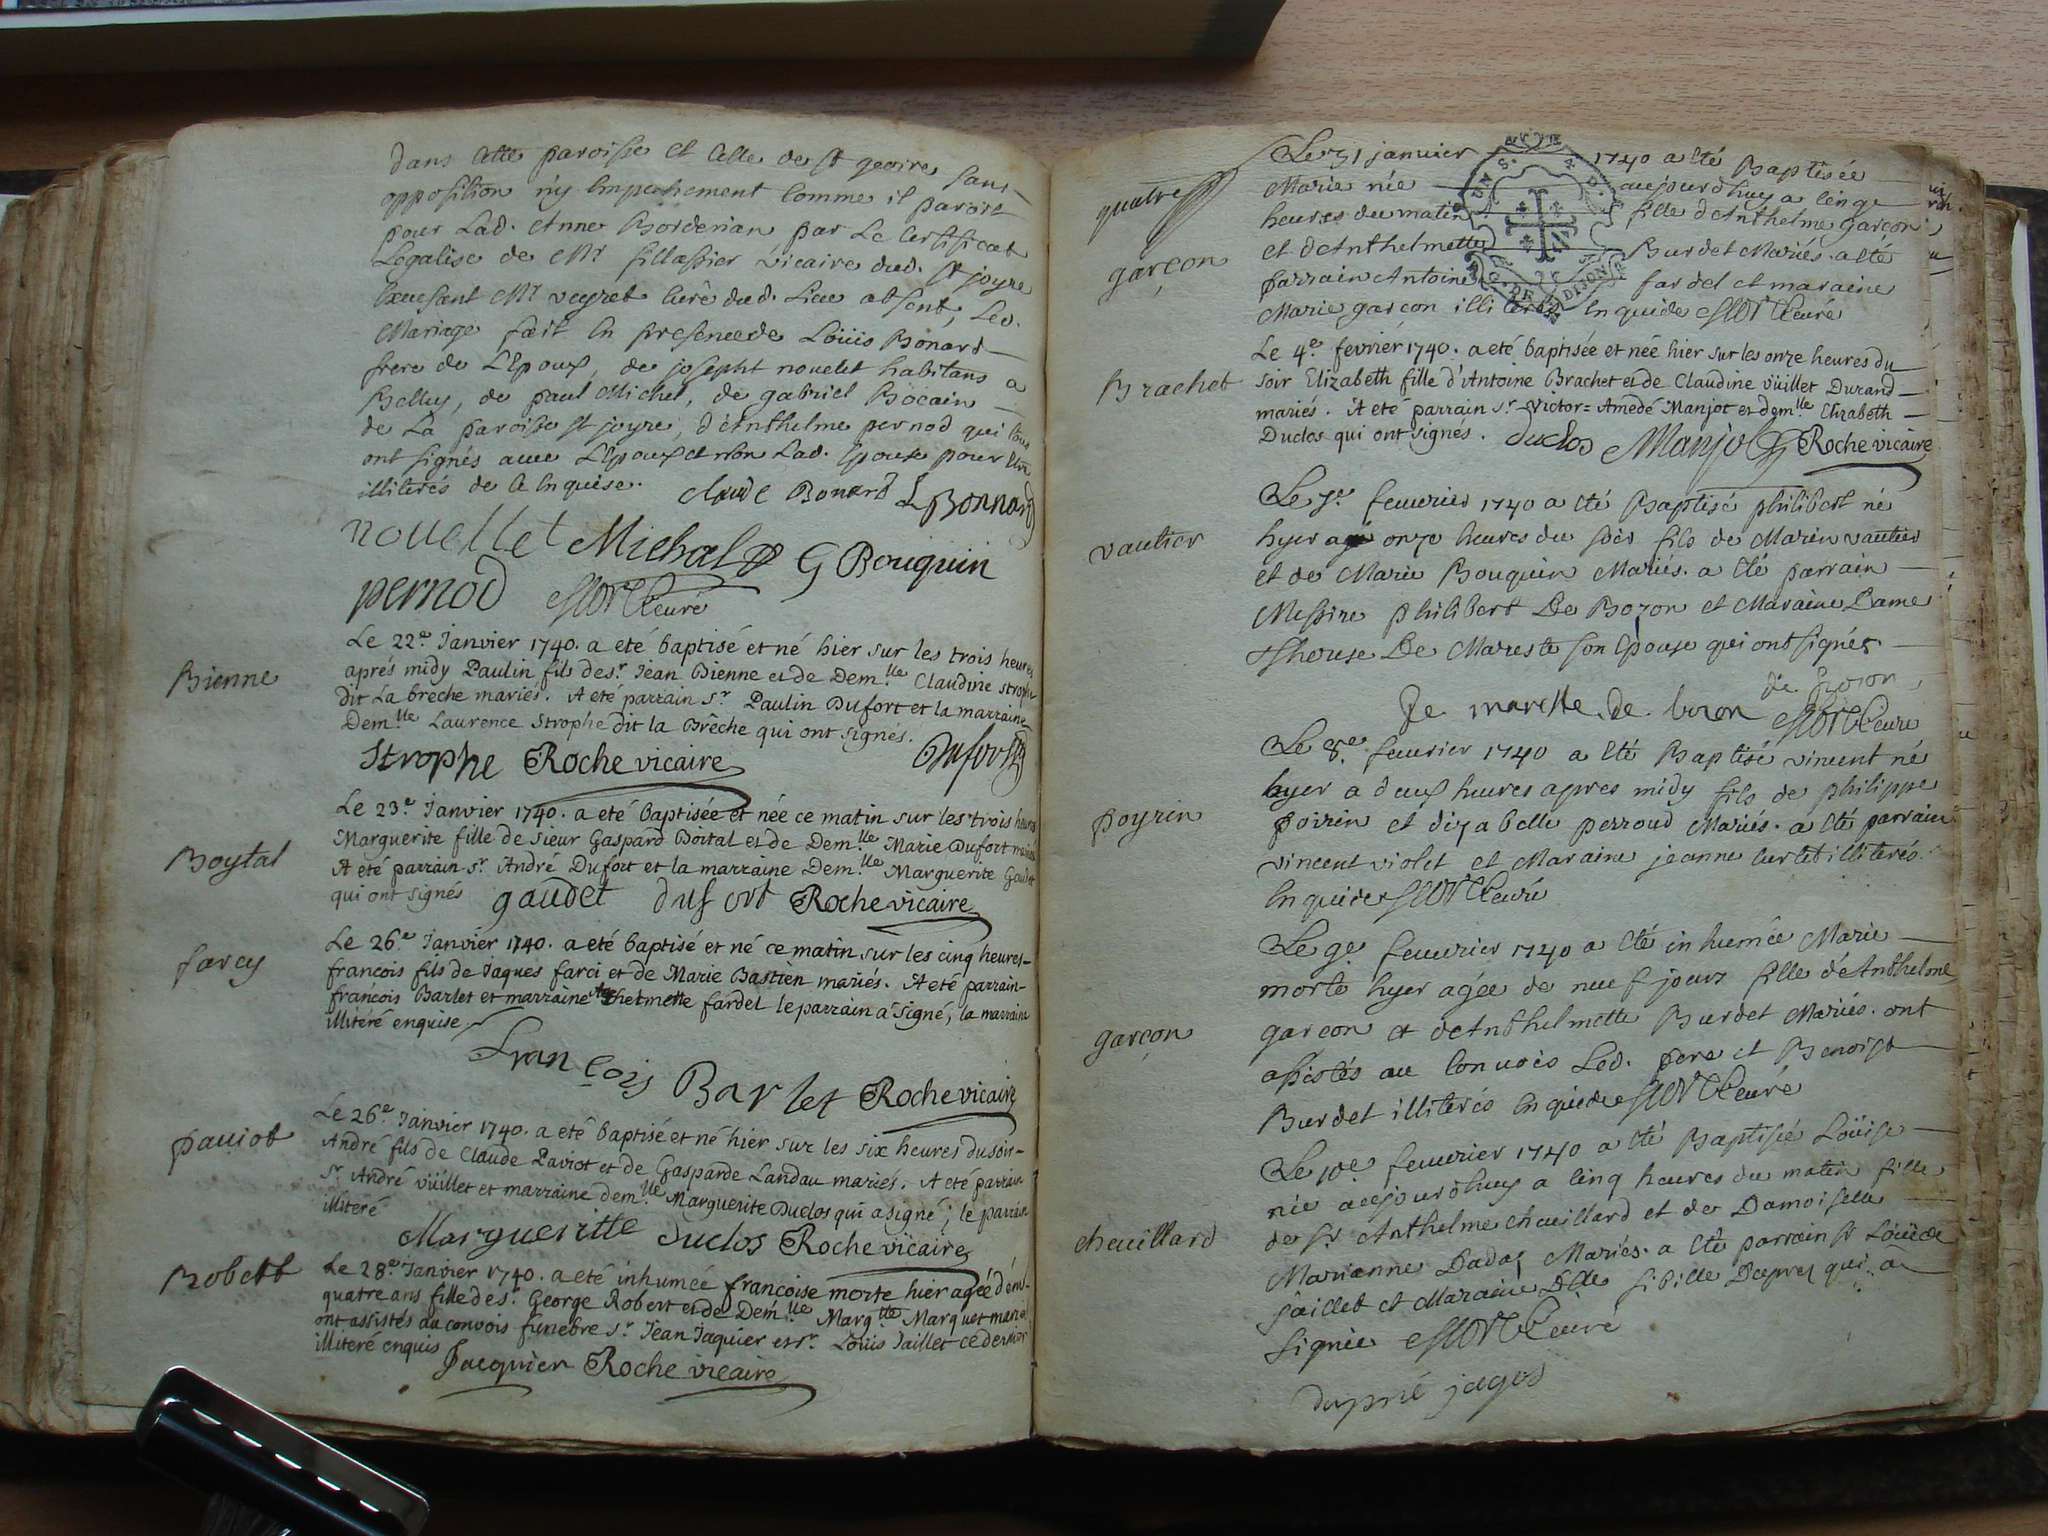 dans cette paroisse et celle de st geoire sans
opposition n'y empechement comme il paroit
pour Lad. Anne Borderian par Le Certificat
Legalise de Mr fillassier vicaire dud. st joyre
Mr veyret curé dud. Lieu absent, Led.
Mariage fait en presence de Loüis Bonard
frere de L'Epoux, de josepht nouelet habitans a
Belley, de paul Michel, de gabriel
de La paroisse st joyre, d'Anthelme pernod qui
ont signés avec L'Epoux et non Lad. Epouse pour
illiterés de ce enquise. claude Bonard L Bonnard
nouellet Michal G Bouquin
pernod curé
Bienne
Le 22.e Janvier 1740. a eté baptisé et né hier sur les trois heures
aprés midy Paulin fils de sr. Jean Bienne et de Dem.lle Claudine strophe
dit La breche mariés. A eté parrain sr. Paulin Dufort et la marraine
Dem.lle Laurence Strophe dit la Brêche qui ont signés.
Strophe Roche vicaire Dufort
Boytal
Le 23.e Janvier 1740. a eté baptisée et née ce matin sur les trois heures
Marguerite fille de sieur Gaspard Boital et de Dem.lle Marie Dufort mariés
A eté parrain sr. André Dufort et la marraine Dem.lle Marguerite Gaudet
qui ont signés gaudet dufort Roche vicaire
farcy
Le 26.e Janvier 1740. a eté baptisé et né ce matin sur les cinq heures
francois fils de Jaques farci et de Marie Bastien mariés. A eté parrain
francois Barlet et marraine Anthelmette fardel le parrain a signé, la marraine
illiteré enquise
François Barlet Roche vicaire
paviot
Le 26.e Janvier 1740. a eté baptisé et né hier sur les six heures du soir
André fils de Claude Paviot et de Gasparde Landau mariés. A eté parrain
sr. André Vüillet et marraine dem.lle Marguerite Duclos qui a signé, le parrain
illiteré
Margueritte duclos Roche vicaire
Robert
Le 28.e Janvier 1740. a eté inhumée francoise morte hier agée d'env.
quatre ans fille de sr. George Robert et de Dem.lle Marg.tte Marquet mariés
ont assistés au convois funebre sr. Jean Jaquier et sr. Loüis Jaillet ce dernier
illiteré enquis
Jacquier Roche vicaire
quatre
garçon
Le 31 janvier 1740 a eté Baptisée
Marie née aujourd'huy a cinq
heures du matin fille d'Anthelme garçon
et d'Anthelmette Burdet Mariés. a eté
parrain Antoine fardel et maraine
Marie garçon illiterés Enquis de curé
Brachet
Le 4.e fevrier 1740. a eté baptisée et née hier sur les onze heures du
soir Elizabeth fille d'Antoine Brachet et de Claudine vüillet Durand
mariés. A eté parrain sr. Victor=Amedé Manjot et dem.lle Elizabeth
Duclos qui ont signés. duclos Manjot Roche vicaire
vautier
Le feuvrier 1740 a eté Baptisé philibert né
hyer a onze heures du soir fils de Marin vautier
et de Marie Bouquin Mariés. a eté parrain
Messire philibert De Bozon et Maraine Dame
Thereze De Mareste son Epouse qui ont signés
De mareste de bozon de Bozon
curé
poyrin
Le 8.e feuvrier 1740 a eté Baptisé vincent né
hyer a deux heures apres midy fils de philippe
poirin et d'izabelle perroud Mariés. a eté parrain
vincent violet et Maraine jeanne curtet illiterés
Enquis de curé
garçon
Le 9e feuvrier 1740 a eté inhumée Marie
morte hyer agée de neuf jours fille d'Anthelme
garçon et d'Anthelmette Burdet Mariés. ont
assistés au Convois Led. pere et Benoist
Burdet illiterés Enquis de curé
chevillard
Le 10.e feuvrier 1740 a eté Baptisée Loüise
née aujourd'huy a cinq heures du matin fille
de sr. Anthelme chevillard et de Damoiselle
Marianne Dadaz Mariés. a eté parrain sr Loüis
jaillet et Maraine Dlle sibille Duprez qui a
signée curé
dupré jagos